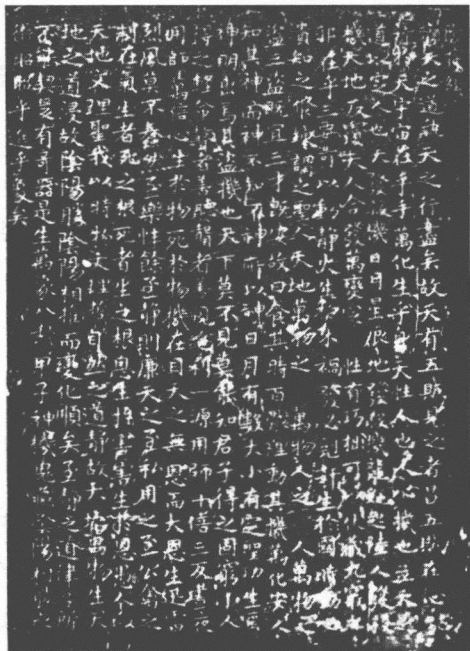 天之道執天之行盡矣故天有五賊見之者昌五賊在心
天宇宙在乎手萬化生乎身天性人也人心機也立天之
道以定人也天發殺機日月星辰地發殺機龍蛇起陸人發殺機
天地反覆天人合發萬變定 性有巧拙可以伏藏九竅之
邪在乎三要可以動靜火生於木禍發必剋姦生於國時動必
潰知之修煉謂之聖人天地萬物之 萬物人之 人萬物之
盜三盜既宜三才既安故曰食其時百骸理動其機萬化安人
知其神而神不知不神所以神日月有數大小有定聖功生焉
神明出焉其盜機也天下莫不見莫能知君子得之固窮小人
得之輕命瞽者善聽聾者善視絕利一源用師十倍三反晝夜
用師萬倍心生於物死於物機在目天之無恩而大恩生迅雷
烈風莫不蠢然至樂性餘至靜則廉天之至私用之至公禽之
制在氣生者死之根死者生之根恩生於害害生於恩愚人以
天地文理聖我以時物文理哲自然之道靜故天地萬物生天
地之道浸故陰陽勝陰陽相推而變化順矣至靜之道律曆所
不能契爰有奇器是生萬象八卦甲子神機鬼藏陰陽相勝之
術昭昭乎進乎象矣